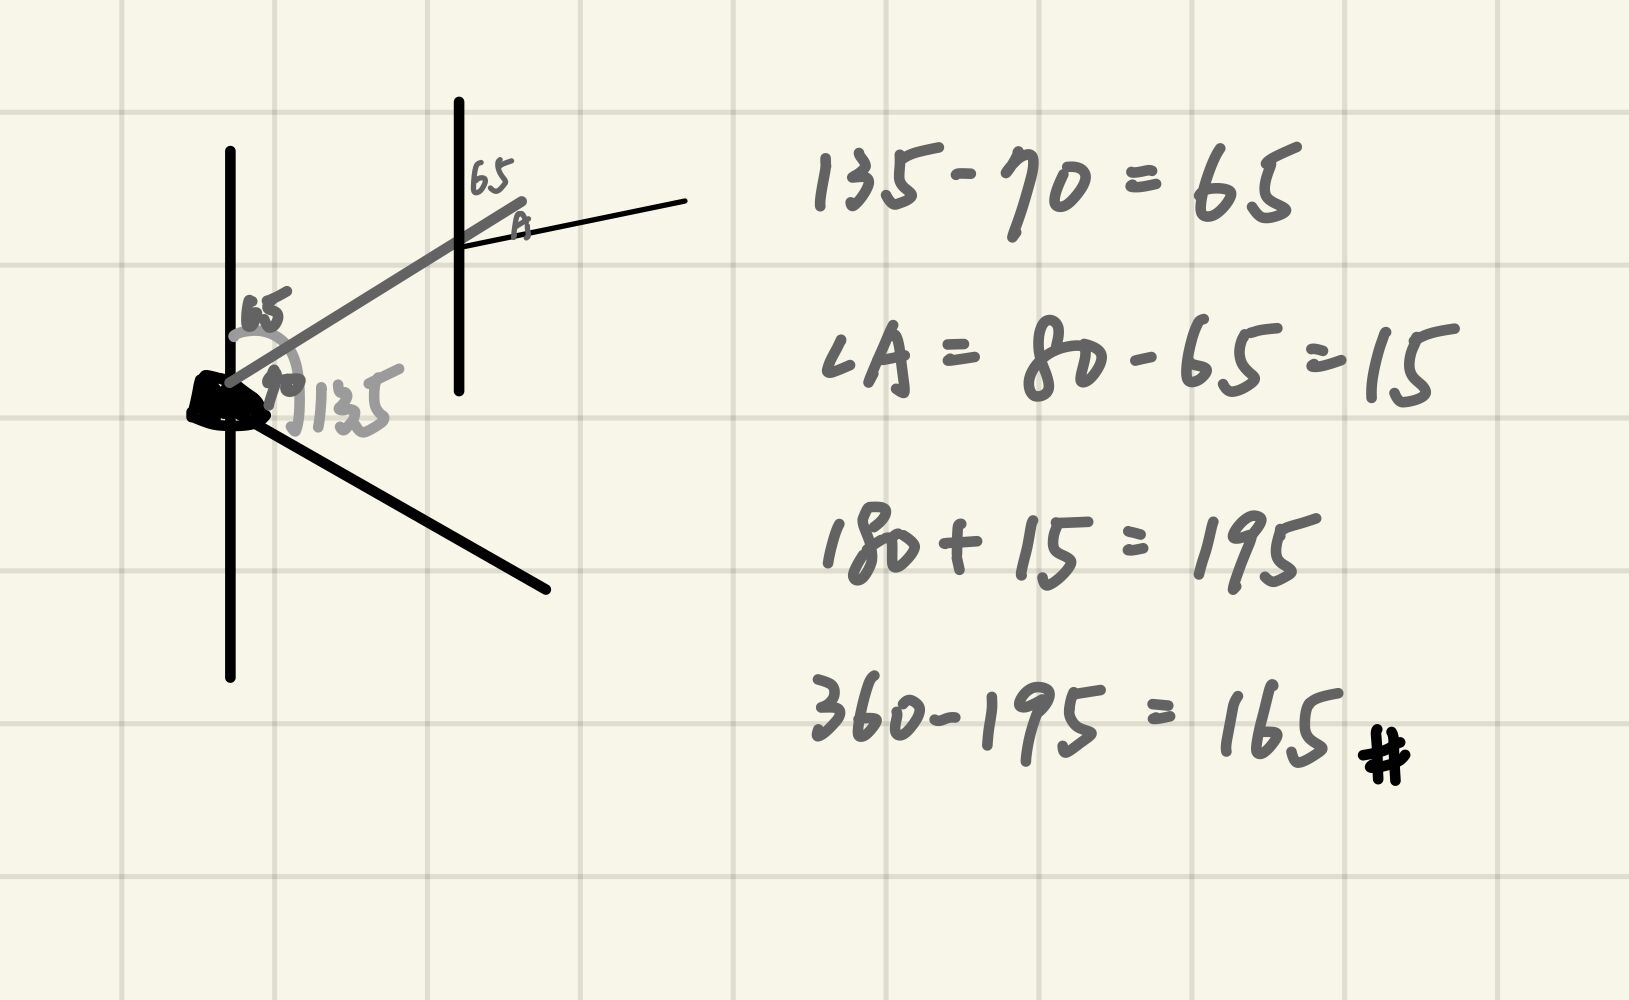 65
A
65
70
135
135 - 70 = 65
∠A = 80 - 65 = 15
180 + 15 = 195
360 - 195 = 165 #